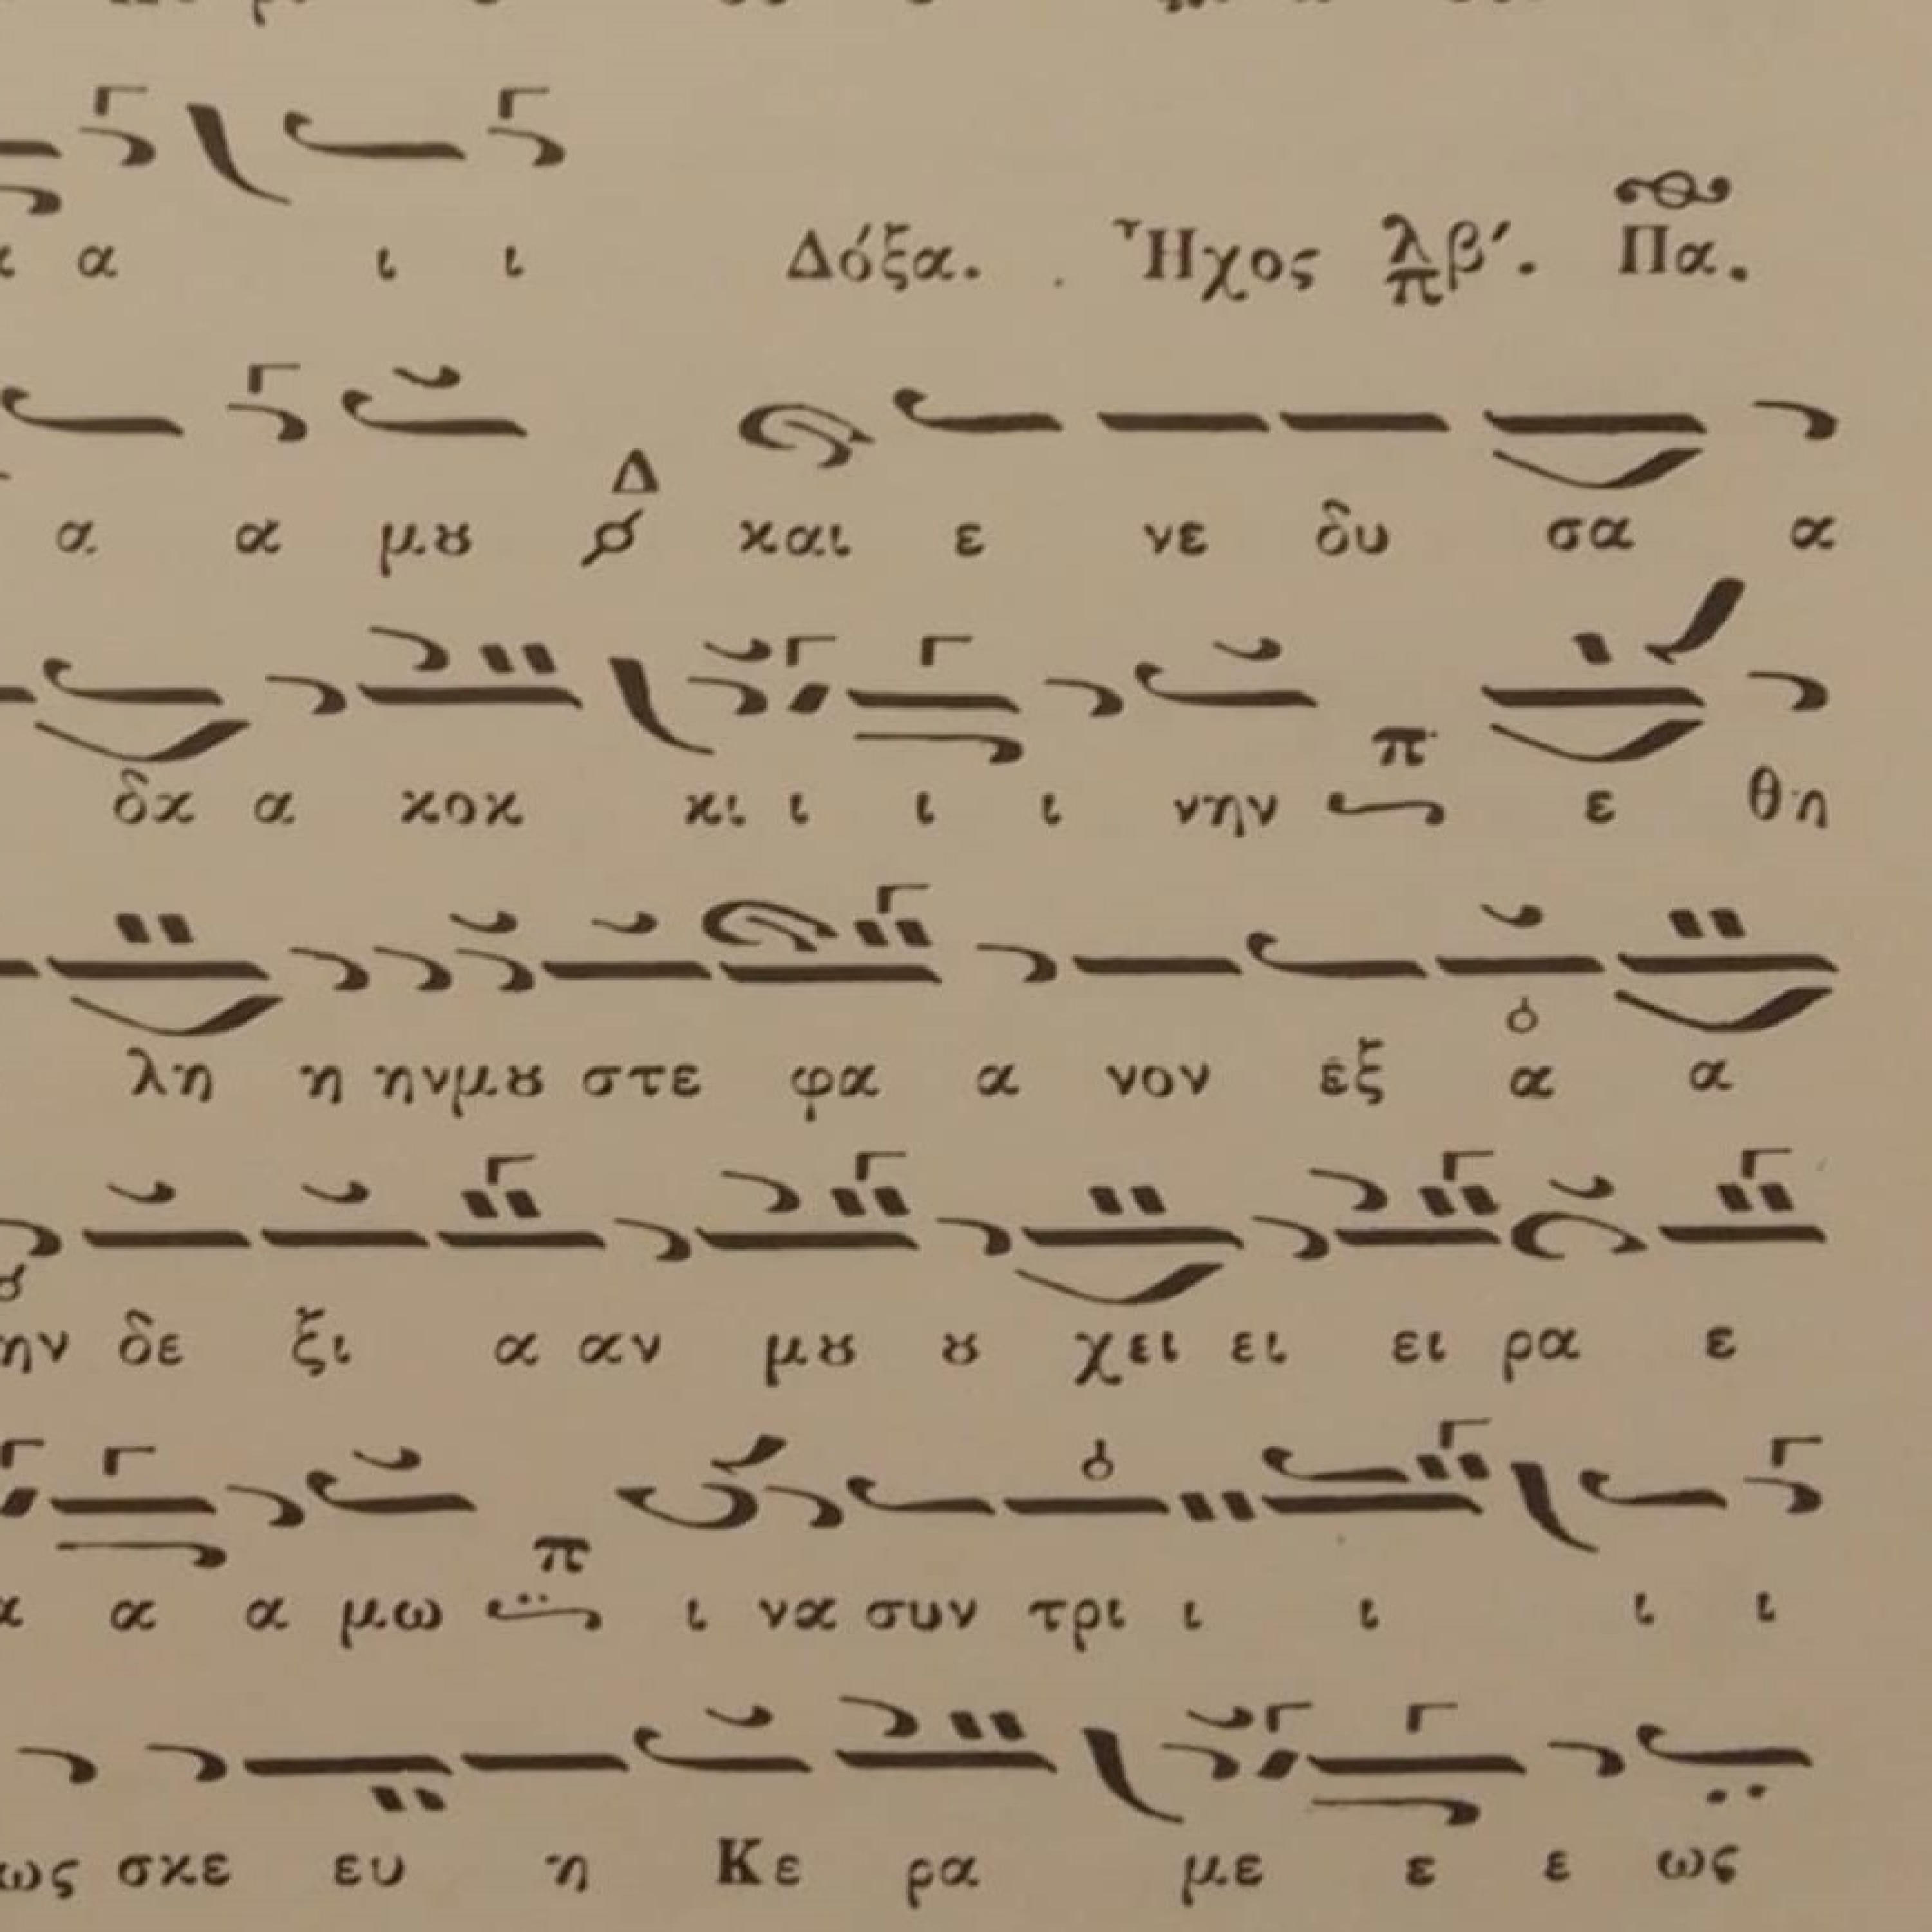 α ι ι Δόξα. Ἦχος λπβ΄. Πα.
α α μȣ Δ και ε νε δυ σα α
δκ α κοκ κι ι ι ι νην π ε θη
λη η ηνμȣ στε φα α νον εξ α α
ην δε ξι α αν μȣ ȣ χει ει ει ρα ε
α α μω π ι να συν τρι ι ι ι ι
ως σκε ευ η Κε ρα με ε ε ως